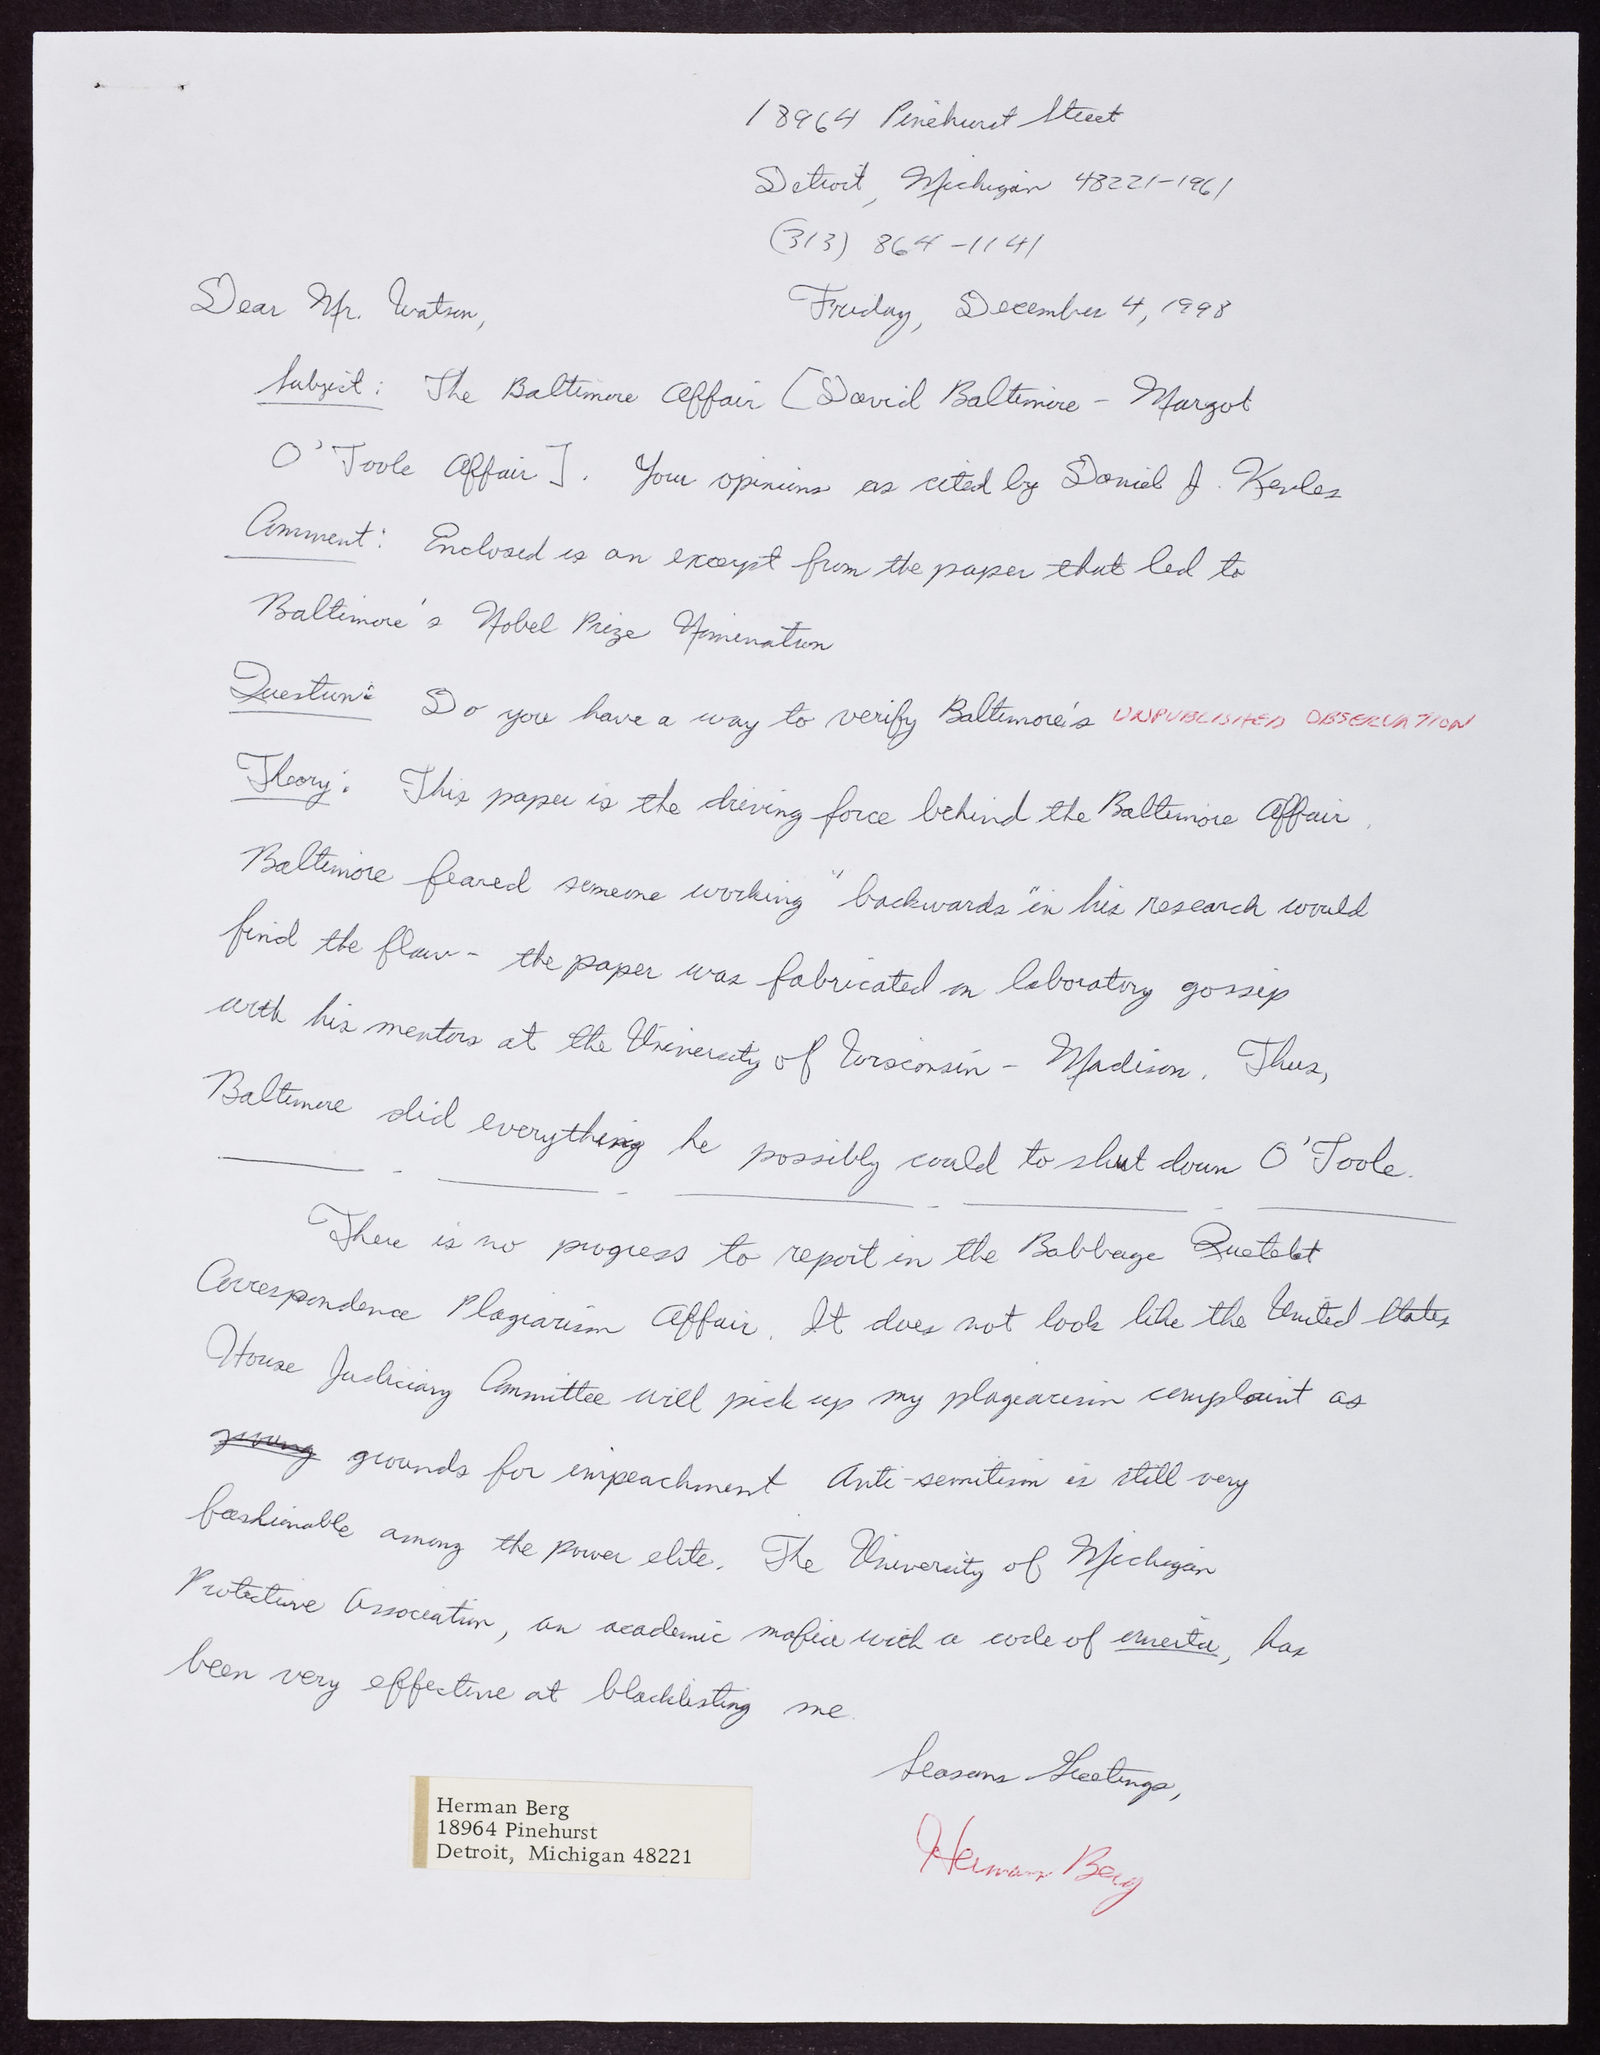 18964 Pinehurst Street
Detroit, Michigan 48221-1961
(313) 864-1141
Dear Mr. Watson,
Friday, December 4, 1998
Subject: The Baltimore Affair [David Baltimore - Margot
O'Toole Affair]. Your opinions as cited by Daniel J. Kevles
Comment: Enclosed is an excerpt from the paper that led to
Baltimore's Nobel Prize Nomination
Question: Do you have a way to verify Baltimore's UNPUBLISHED OBSERVATION
Theory: This paper is the driving force behind the Baltimore Affair.
Baltimore feared someone working "backwards" in his research would
find the flaw - the paper was fabricated on laboratory gossip
with his mentors at the University of Wisconsin - Madison. Thus,
Baltimore did everything he possibly could to shut down O'Toole.
There is no progress to report in the Babbage Quetelet
Correspondence Plagiarism Affair. It does not look like the United States
House Judiciary Committee will pick up my plagiarism complaint as
grounds for impeachment Anti-semitism is still very
fashionable among the power elite. The University of Michigan
Protective Association, an academic mafia with a code of omerta, has
been very effective at blacklisting me.
Seasons Greetings,
Herman Berg
Herman Berg
18964 Pinehurst
Detroit, Michigan 48221